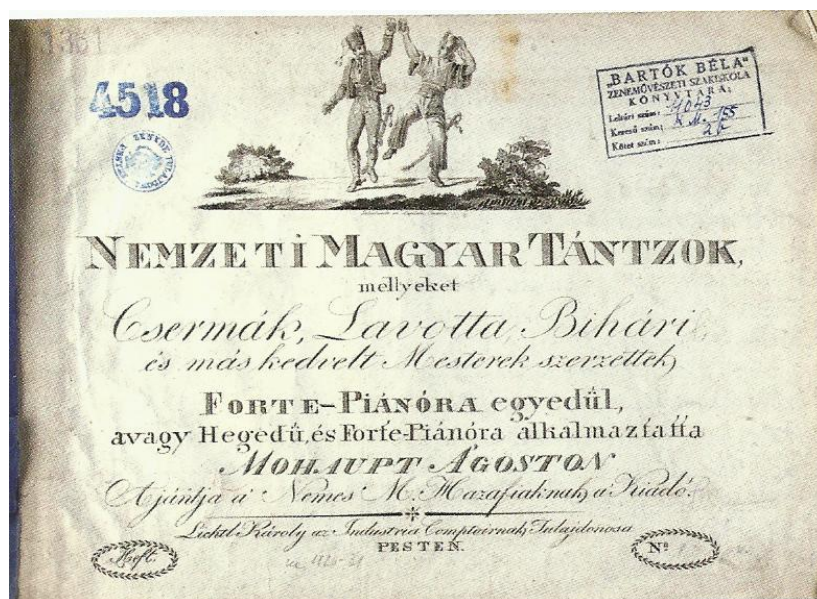 1361
4518
"BARTÓK BÉLA"
ZENEMŰVÉSZETI SZAKISKOLA
KÖNYVTÁRA:
Leltári szám: 4043
Kereső szám: K.M. 155
Kötet szám: 2b
NEMZETI MAGYAR TÁNTZOK,
mellyeket
Csermák, Lavotta, Bihári,
és más kedvelt Mesterek szerzettek,
FORTE-PIÁNÓRA egyedűl,
avagy Hegedű, és Forte-Piánóra alkalmaztatta
MOHAUPT ÁGOSTON
Ajánlja a' Nemes M. Hazafiaknak, a' Kiadó.
Lichtl Károly az Industria Comptoirnak Tulajdonosa
PESTEN.
Heft.
Nº